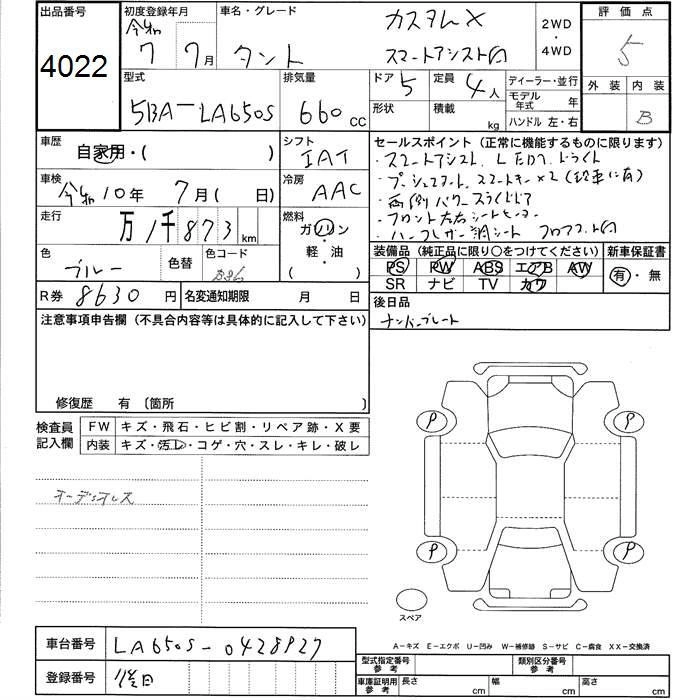 出品番号 初度登録年月 車名・グレード 評価点
4022 令和 7 7月 タント カスタムX 2WD・4WD 5
スマートアシスト付
型式 排気量 ドア 5 定員 4人 ディーラー・並行 外装 内装
5BA-LA650S 660cc 形状 積載 kg モデル年式 年 B
ハンドル 左・右
車歴 シフト セールスポイント(正常に機能するものに限ります)
自家用・( ) IAT ・スマートアシスト、LED
車検 冷房 ・プッシュスタート、スマートキー×2
令和10年 7月( 日) AAC ・両側パワースライドドア
走行 燃料 ・フロント左右シートヒーター
万1千873km ガソリン・軽油( ) ・ハーフレザー調シート フロアマット付
色 色替 色コード 装備品(純正品に限り○をつけてください) 新車保証書
ブルー B86 PS PW ABS エアB AW 有・無
SR ナビ TV カワ
R券 8630円 名変通知期限 月 日 後日品
注意事項申告欄(不具合内容等は具体的に記入して下さい) ナンバープレート
修復歴 有〔箇所 〕
検査員記入欄 FW キズ・飛石・ヒビ割・リペア跡・X要
内装 キズ・汚レ・コゲ・穴・スレ・キレ・破レ
オーディオレス
P P
P P
スペア
車台番号 LA650S-0428927
A-キズ E-エクボ U-凹み W-補修跡 S-サビ C-腐食 XX-交換済
登録番号 後日
型式指定番号参考 類別区分番号参考
車庫証明用参考 長さ cm 幅 cm 高さ cm